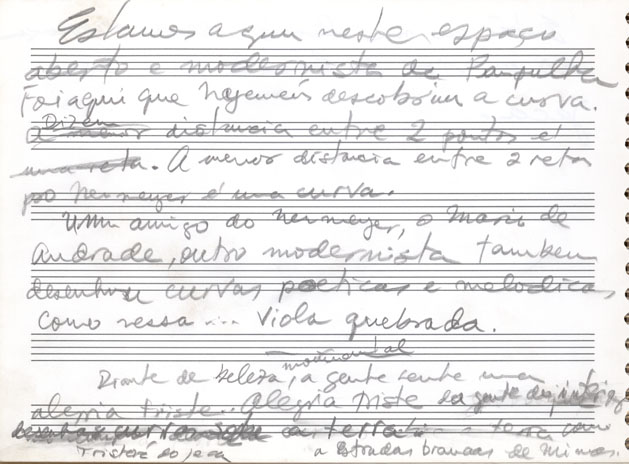 Estamos aqui neste espaço
aberto e modernista da Pampulha
Foi aqui que Niemeyer descobriu a curva.
Dizem
A menor distancia entre 2 pontos é
uma reta. A menor distancia entre 2 retas
pro Niemeyer é uma curva.
Um amigo do Niemeyer, o Mario de
Andrade, outro modernista tambem
desenhou curvas poeticas e melodicas
como nessa ... Viola quebrada.
monumental
Diante de beleza, a gente sente uma
alegria triste.. Alegria triste da gente
a terra
Tristeza do jeca a Estradas brancas de Minas.